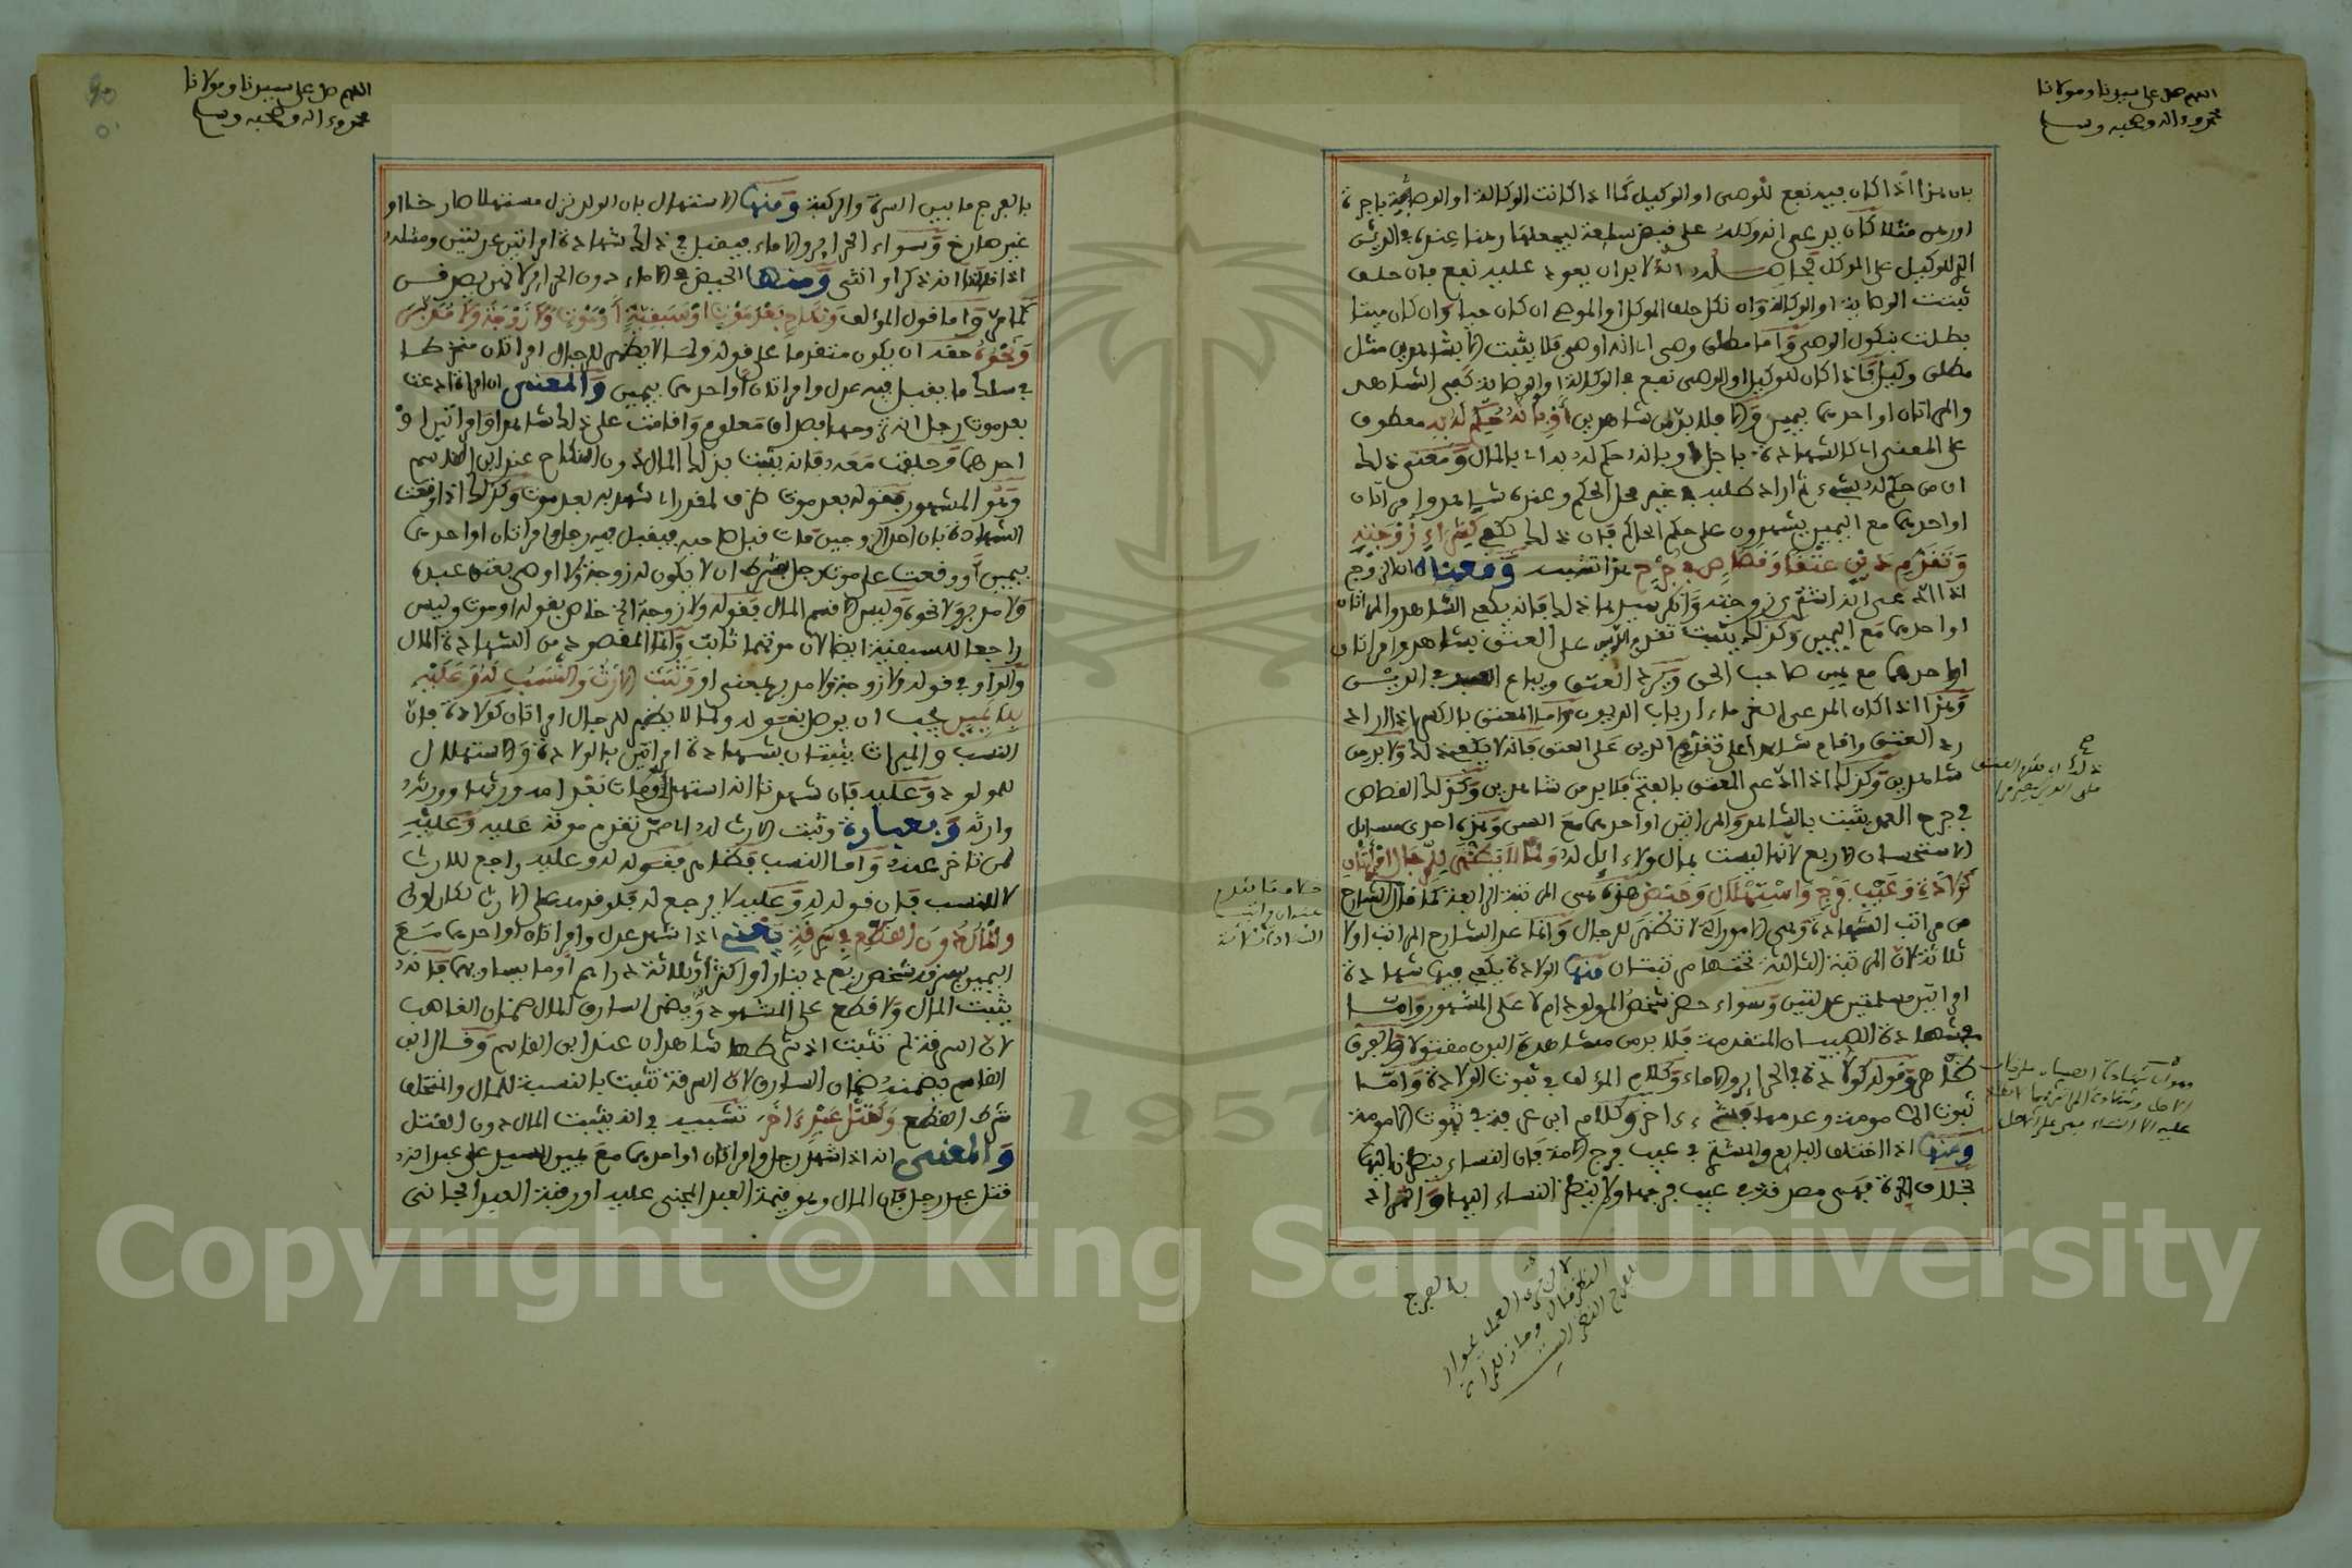 اللهم صل على سيدنا ومولانا
محمد وءاله وصحبه وسلم
بان هذا اذا كان فيه نفع للوصي او الوكيل كما اذا كانت الوكالة او الوصاية باجرة
او رهن مثلا كان يدعي انه وكله على قبض سلعة ليجعلها رهنا عنده في الدين
الذي للوكيل على الموكل لانه لا بد ان يعود عليه نفع فان حلف
ثبتت الوصاية او الوكالة وان نكل حلف الموكل او الموصي ان كان حيا وان كان ميتا
بطلت بنكول الوصي واما مطلق وصي اي انه اوصى فلا يثبت الا بشاهدين مثل
مطلق وكيل فاذا كان للوكيل او الوصي نفع في الوكالة او الوصاية كفى الشاهد
والمراتان او احدهما بيمين والا فلا بد من شاهدين أو بأنه حكم له به معطوف
على المعنى اي كالشهادة باجل او بانه حكم له به اي بالمال ومعنى ذلك
ان من حكم له بشيء ثم اراد طلبه في غير محل الحكم وعنده شاهد وامراتان
او احدهما مع اليمين يشهدون على حكم الحاكم فان ذلك يكفي كشراء زوجته
وتقدم دين عتقا وقصاص في جرح هذا تشبيه ومعناه ان الزوج
اذا ادعى انه اشترى زوجته وانكر سيدها ذلك فانه يكفي الشاهد والمراتان
او احدهما مع اليمين وكذلك يثبت تقدم الدين على العتق بشاهد وامراتان
او احدهما مع يمين صاحب الحق ويرد العتق ويباع العبد في الدين
وهذا اذا كان المدعي الغرماء ارباب الديون واما المعتق بالكسر اذا اراد
رد العتق واقام شاهدا على تقدم الدين على العتق فانه لا يكفي ذلك ولا بد من
شاهدين وكذلك اذا ادعى المعتق بالفتح فلا بد من شاهدين وكذلك القصاص
في جرح العمد يثبت بالشاهد والمراتين او احدهما مع اليمين وهذه احدى مسايل
الاستحسان الاربع لانها ليست بمال ولا ءايل له ولما لا يظهر للرجال امرأتان
كولادة وعيب فرج واستهلال وحيض هذه هي المرتبة الرابعة كما قال الشارح
من مراتب الشهادة وهي الامور التي لا تظهر للرجال وانما عد الشارح المراتب اولا
ثلاثة لان المرتبة الثالثة تحتها مرتبتان منها الولادة يكفي فيها شهادة
امراتين مسلمتين عدلتين وسواء حضر شخص المولود ام لا على المشهور واما
شهادة الصبيان المتقدمة فلا بد من مشاهدة البدن مقتولا والفرق
ظاهر وقوله كولادة في الحراير والاماء وكلام المؤلف في ثبوت الولادة واما
ثبوت الامومة وعدمها فشيء ءاخر وكلام ابن عرفة في ثبوت الامومة
ومنها اذا اختلف البايع والمشتري في عيب فرج الامة فان النساء ينظرن اليها
بخلاف الحرة فهي مصدقة في عيب فرجها ولا ينظر النساء اليها والمراد
بالفرج
اللهم صل على سيدنا ومولانا
محمد وءاله وصحبه وسلم
بالفرج ما بين السرة والركبة ومنها الاستهلال بان الولد نزل مستهلا صارخا او
غير صارخ وسواء الحراير والاماء فيقبل في ذلك شهادة امراتين عدلتين ومثله
اذا قالتا انه ذكر او انثى ومنها الحيض في الاماء دون الحراير لانهن يصدقن
كما مر واما قول المؤلف ونكاح بعد موت او سبقيته أو موت ولا زوجة ولا مدبر
ونحوه حقه ان يكون متقدما على قوله ولما لا يظهر للرجال امراتان منخرطا
في سلك ما يقبل فيه عدل وامراتان او احدهما بيمين والمعنى ان امراة ادعت
بعد موت رجل انه تزوجها بصداق معلوم واقامت على ذلك شاهدا وامراتين او
احدهما وحلفت معه فانه يثبت بذلك المال دون النكاح عند ابن القاسم
وهو المشهور فقوله بعد موت ظرف لمقدر اي شهد به بعد موت وكذلك اذا وقعت
الشهادة بان احد الزوجين مات قبل صاحبه فيقبل فيه رجل وامراتان او احدهما
بيمين او وقعت على موت رجل بشرط ان لا يكون له زوجة ولا اوصى بعتق عبده
ولا مدبر ولا نحوه وليس الا قسم المال فقوله ولا زوجة الخ خاص بقوله او موت وليس
راجعا للسبقية ايضا لان موتهما ثابت وانما المقصود من الشهادة المال
والواو في قوله ولا زوجة ولا مدبر بمعنى او وثبت الارث والنسب له وعليه
بلا يمين يجب ان يوصل بقوله ولما لا يظهر للرجال امراتان كولادة فان
النسب والميراث يثبتان بشهادة امراتين بالولادة والاستهلال
للمولود وعليه فان شهدتا انه استهل ومات بعد امه ورثها وورثه
وارثه وبعبارة وثبت الارث له اي ممن تقدم موته عليه وعليه
لمن تاخر عنه واما النسب فظاهر فقوله له وعليه راجع للارث
لا للنسب فان قوله له وعليه لا يرجع له فلو قدمه على الارث لكان اولى
والمال دون القطع في سرقة يعني اذا شهد عدل وامراتان او احدهما مع
اليمين بسرقة شخص ربع دينار او اكثر او ثلاثة دراهم او ما يساويها فانه
يثبت المال ولا قطع على المشهود ويضمن السارق المال ضمان الغاصب
لان السرقة لم تثبت اذ شرطها شاهدان عند ابن القاسم وقال ابن
القاسم يضمنه ضمان السارق لان السرقة تثبت بالنسبة للمال والمتخلف
شرط القطع وكقتل عبد ءاخر تشبيه في انه يثبت المال دون القتل
والمعنى انه اذا شهد رجل وامراتان او احدهما مع يمين السيد على عبد انه
قتل عبد رجل فان المال وهو قيمة العبد المجني عليه او رقبة العبد الجاني
Copyright © King Saud University
1957